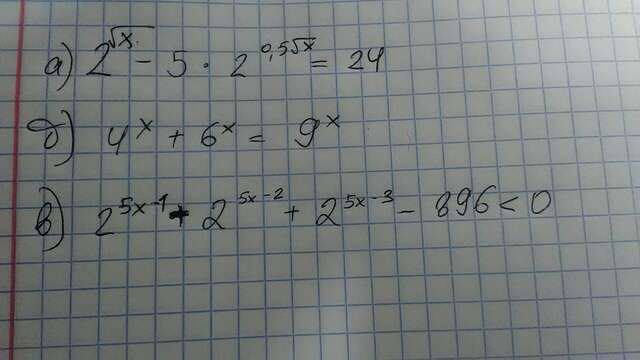 а) 2^√x - 5 · 2^0,5√x = 24
б) 4^x + 6^x = 9^x
в) 2^5x-1 + 2^5x-2 + 2^5x-3 - 896 < 0